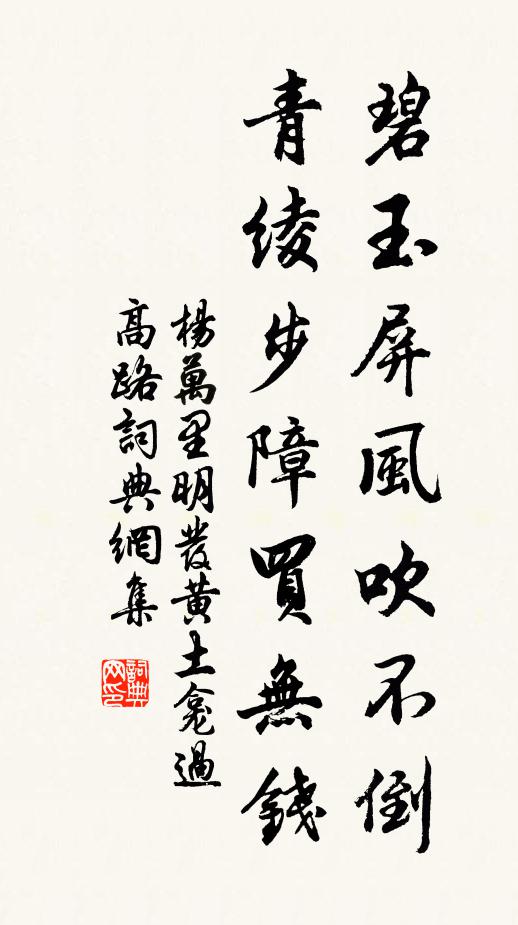 碧玉屏風吹不倒
青綾步障買無錢
楊萬里明發黃土龕過
高路詞典網集
詞典
网印